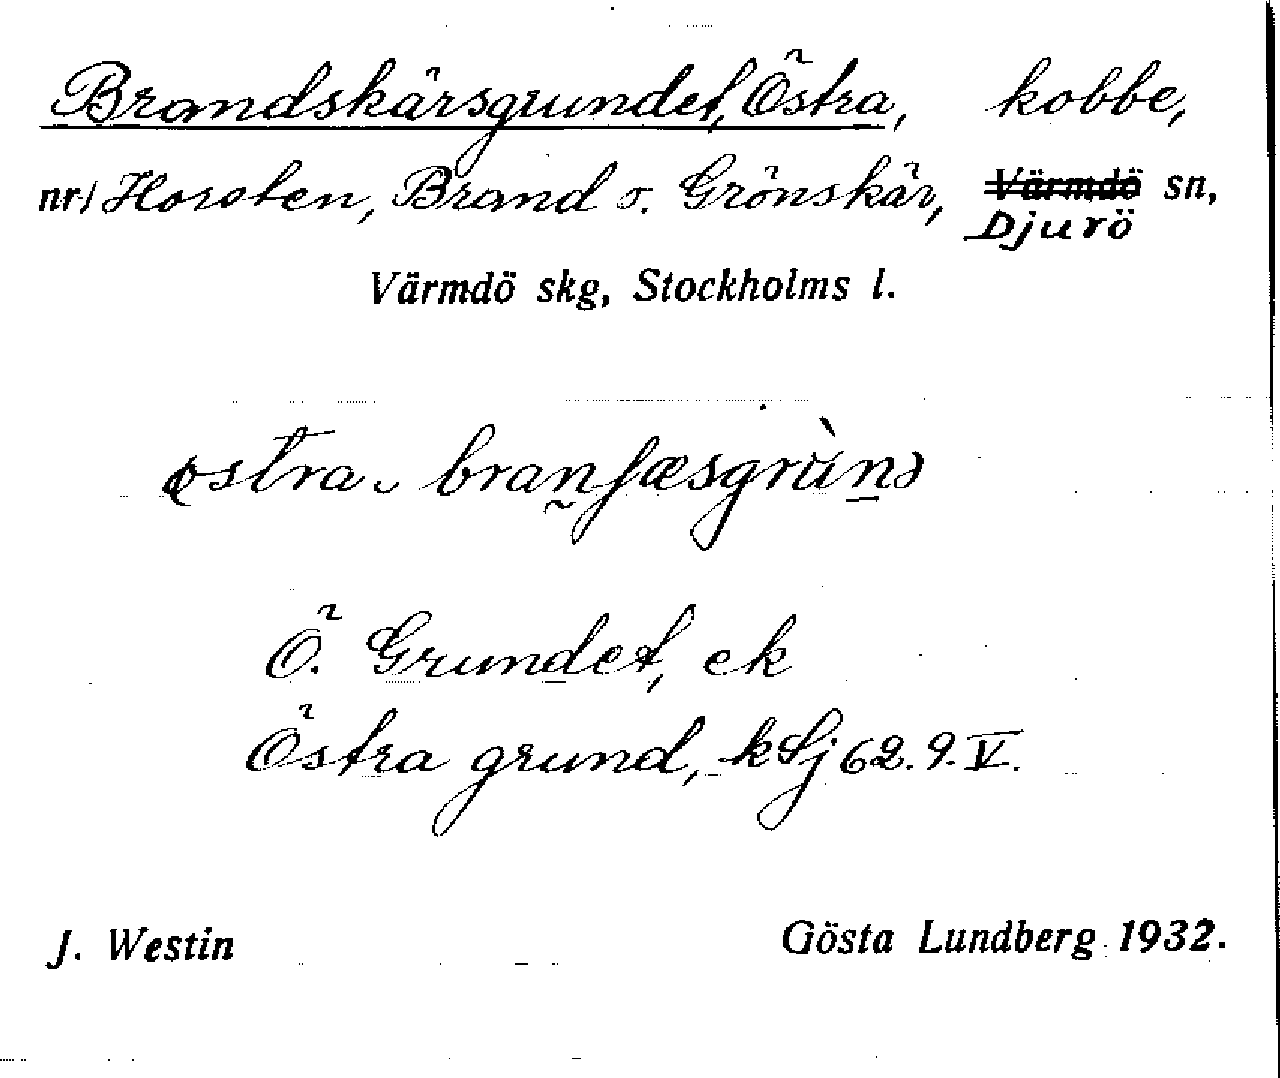 Brandskärsgrundet, Östra, kobbe,
nr/ Horsten, Brand o. Grönskär, Värmdö sn,
Djurö
Värmdö skg, Stockholms l.
östra branſæsgrùnd
Ö. Grundet, ek
Östra grund, kSj 62. 9. V.
J. Westin Gösta Lundberg 1932.